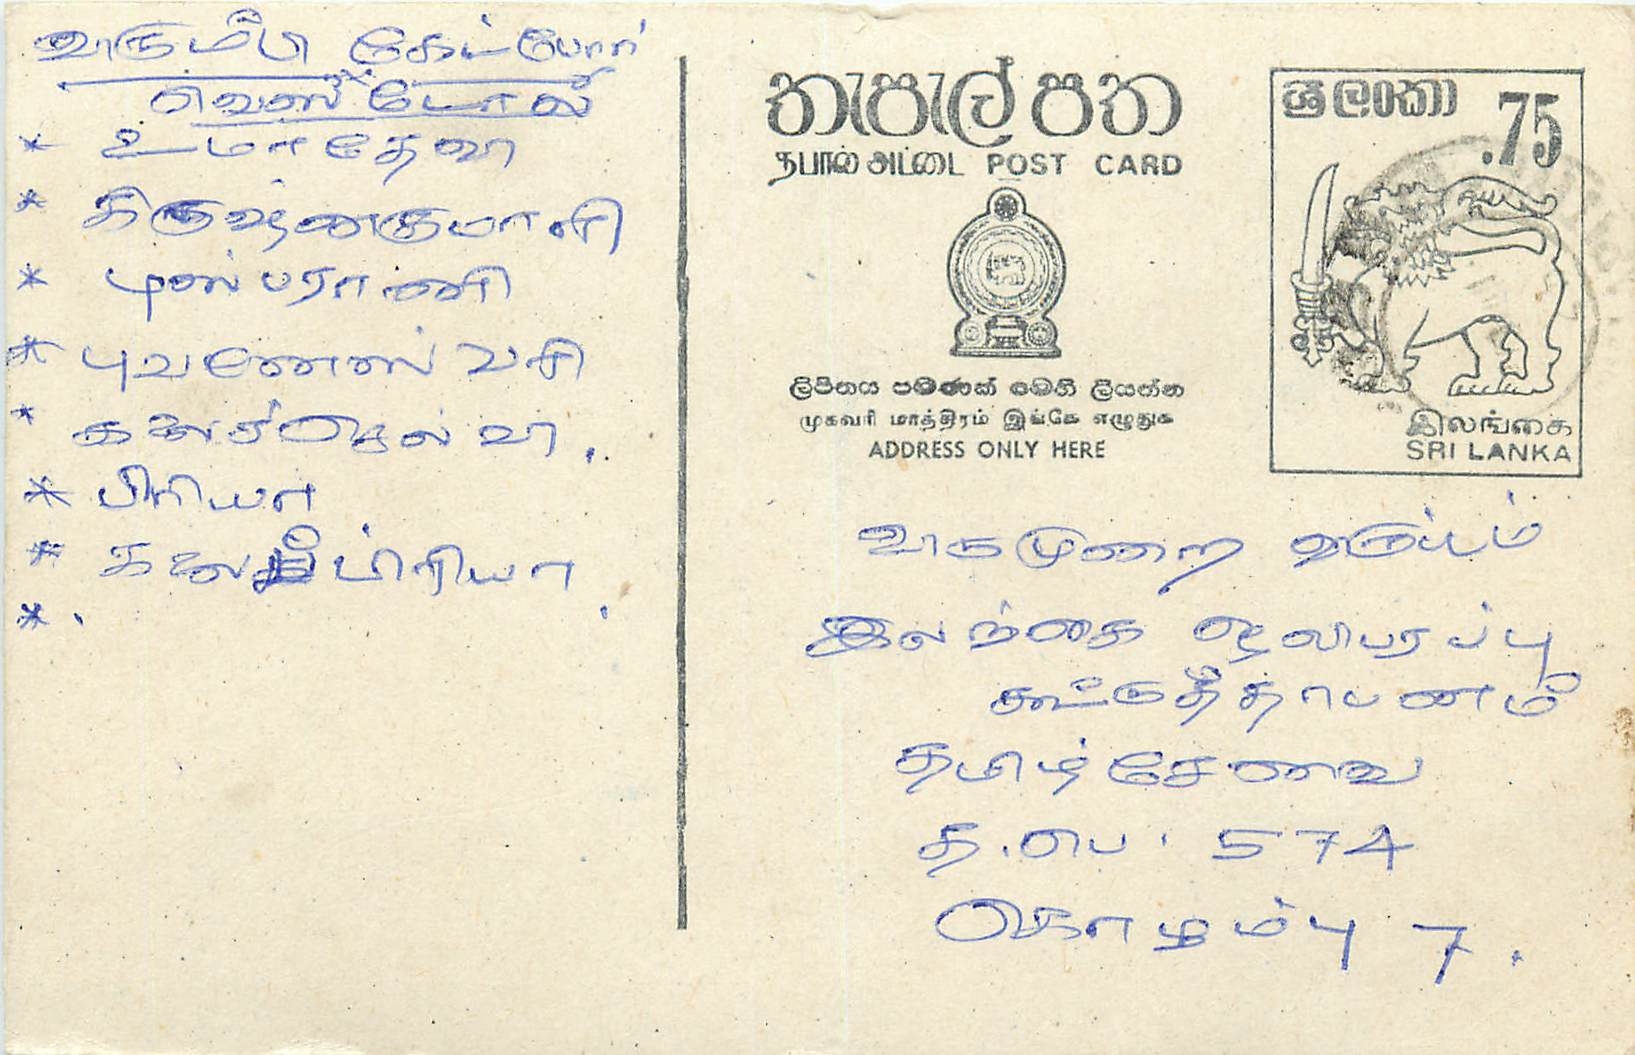 விரும்பி கேட்போர்
வெஸ்டோலி
* உமாதேவி
* கிருஷ்ணகுமாரி
* புஸ்பராணி
* புவனேஸ்வரி
* கலைச்செல்வி.
* பிரியா
* கலைப்பிரியா
*
තැපැල් පත
தபால் அட்டை POST CARD
ලිපිනය පමණක් මෙහි ලියන්න
முகவரி மாத்திரம் இங்கே எழுதுக
ADDRESS ONLY HERE
ශ්‍රී ලංකා .75
இலங்கை
SRI LANKA
இலங்கை ஒலிபரப்பு
கூட்டுத்தாபனம்
தமிழ்சேவை
த.பெ. 574
கொழும்பு 7.